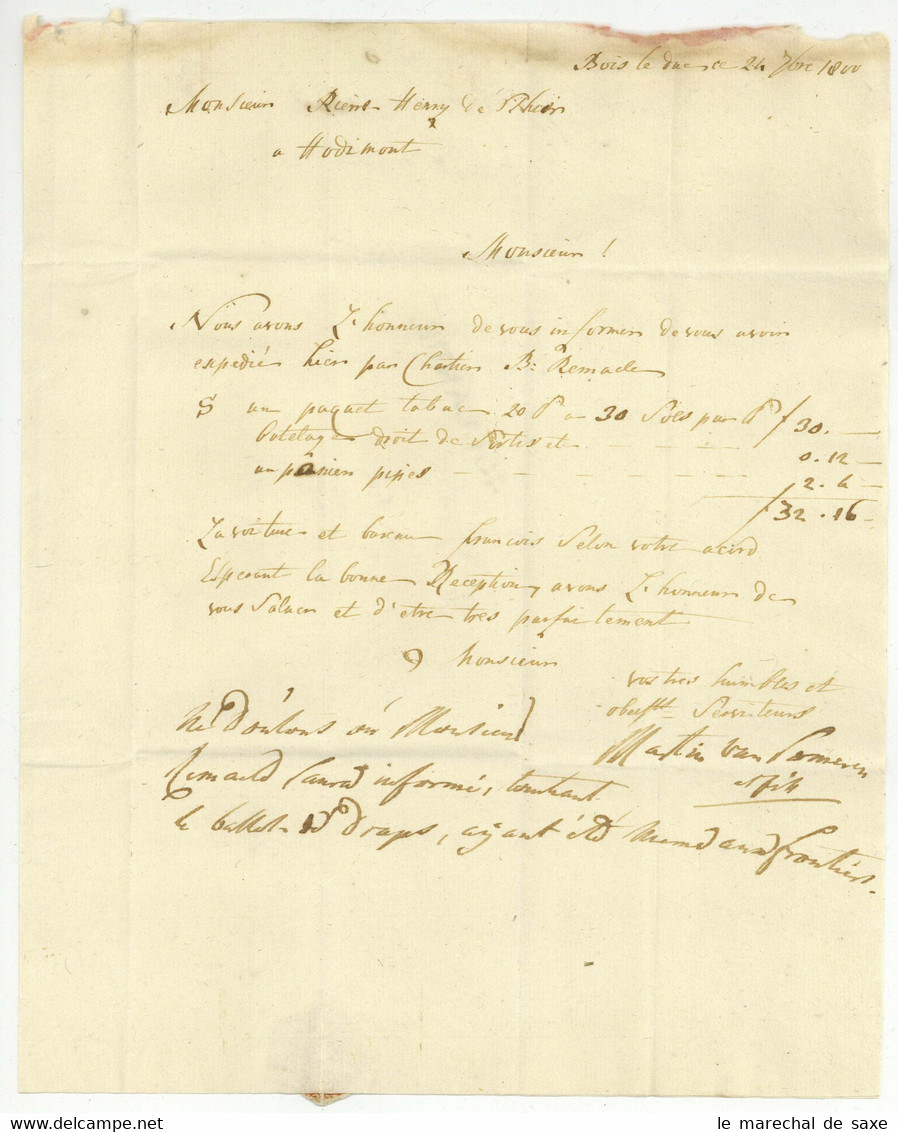 Bois le duc ce 24 7bre 1800
Monsieur Henry de
a Hodimont
Monsieur !
Nous avons L'honneur de vous informer de vous avoir
expedié hier par Chartier Br Remacle
S un paquet tabac 20 P a 30 Sols par P f 30. —
droit de et — — — 0.12 —
un pânier pipes — — — 2.6 —
f 32.16 —
La voiture et bureau francois Selon votre acord
Esperant la bonne Reception, avons L'honneur de
vous Saluer et d'etre tres parfaitement
Monsieur
vos tres humbles et
Serviteurs
Martin van
et fils
Ne Doutons où Monsieur
Remacle L'aura informé, touchant
le ballot de draps, aÿant été mené aux frontiers.
le marechal de saxe